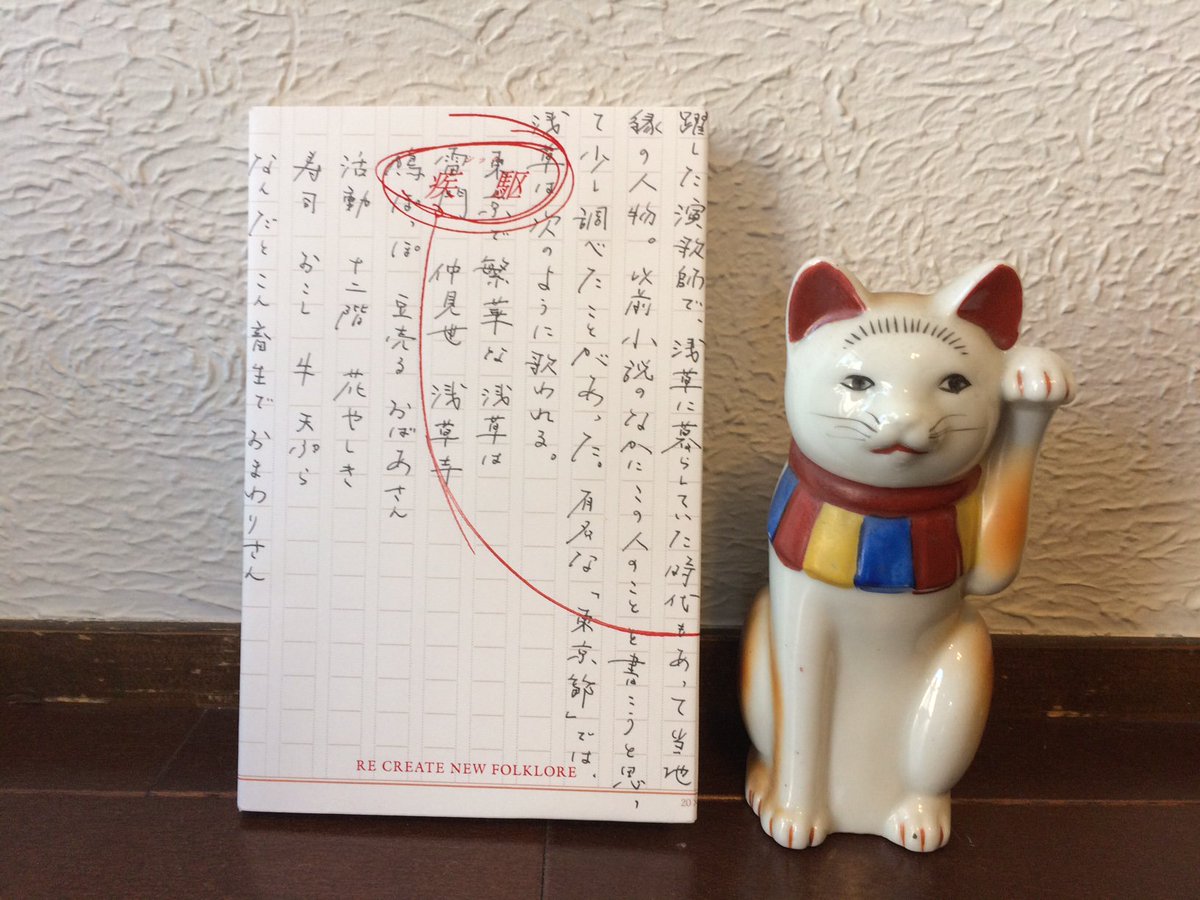 躍した演歌師で、浅草に暮らしていた時代もあって当地
縁の人物。以前小説のなかにこの人のことを書こうと思っ
て少し調べたことがあった。有名な「東京節」では、
浅草は次のように歌われる。
東京で繁華な浅草は
雷門 仲見世 浅草寺
鳩ぽっぽ 豆売る おばあさん
活動 十二階 花やしき
寿司 おこし 牛 天ぷら
なんだとこん畜生で おまわりさん
疾駆
RE CREATE NEW FOLKLORE
20